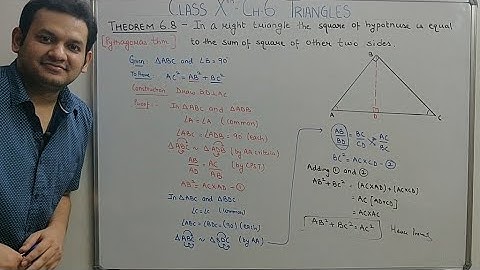 CLASS Xth CH-6 TRIANGLES
THEOREM 6.8 - In a right triangle the square of hypotnuse is equal
[Pythagoras thm.] to the sum of square of other two sides.
Given: △ABC and ∠B=90°
To Prove: AC² = AB² + BC²
Construction: Draw BD⊥AC
Proof: In △ABC and △ADB
∠A = ∠A (common)
∠ABC = ∠ADB = 90 (each)
△ABC ~ △ADB (by AA criteria)
AB/AD = AC/AB (by CPST)
AB² = AC×AD - ①
In △ABC and △BDC
∠C = ∠C (common)
∠ABC = ∠BDC = 90° (each)
△ABC ~ △BDC (by AA)
B
A
D
C
AB/BD = BC/CD = AC/BC
BC² = AC×CD - ②
Adding ① and ②
AB² + BC² = (AC×AD) + (AC×CD)
= AC [AD+CD]
= AC×AC
AB² + BC² = AC² Hence